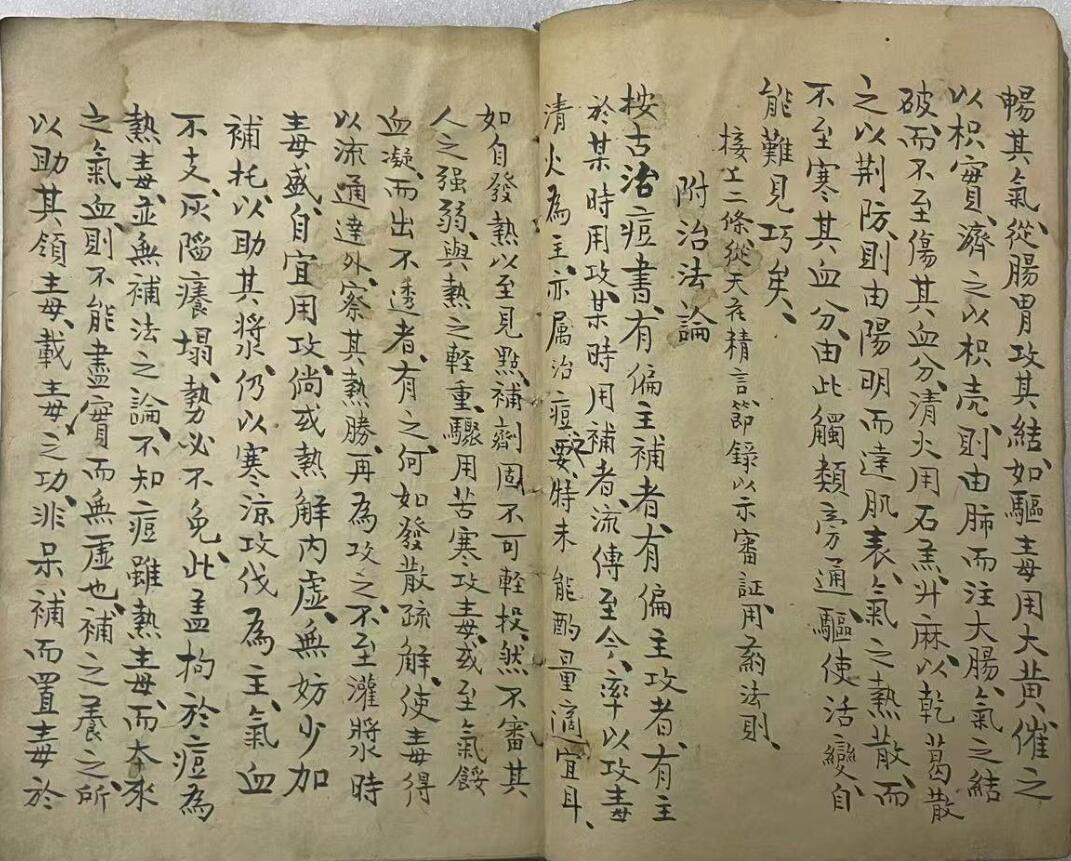 暢其氣、從腸胃攻其結、如驅毒用大黄、催之
以枳實、濟之以枳壳、則由肺而注大腸、氣之結
破、而不至傷其血分、清火用石羔、升麻、以乾葛散
之以荆防、則由陽明而達肌表、氣之熱散、而
不至寒其血分、由此觸類旁通、驅使活變、自
能難見巧矣、
接上二條從天花精言節錄以示審証用药法則、
附治法論
按古治痘書、有偏主補者、有偏主攻者、有主
於某時用攻、某時用補者、流傳至今、率以攻毒
清火為主、亦属治痘要、特未能酌量適宜耳、
如自發熱以至見點、補劑固不可輕投、然不審其
人之强弱、與熱之軽重、驟用苦寒攻毒、或至氣餒
血凝、而出不透者、有之、何如發散疏解、使毒得
以流通達外、察其熱勝、再為攻之、不至灌漿時
毒盛、自宜用攻、倘或熱解内虛、無妨少加
補托、以助其將水、仍以寒涼攻伐為主、氣血
不支、灰陷癢塌、勢必不免、此盖拘於痘為
熱毒、並無補法之論、不知痘雖熱毒、而本來
之氣血、則不能盡實而無虚也、補之養之、所
以助其領毒、載毒之功、非呆補而置毒於